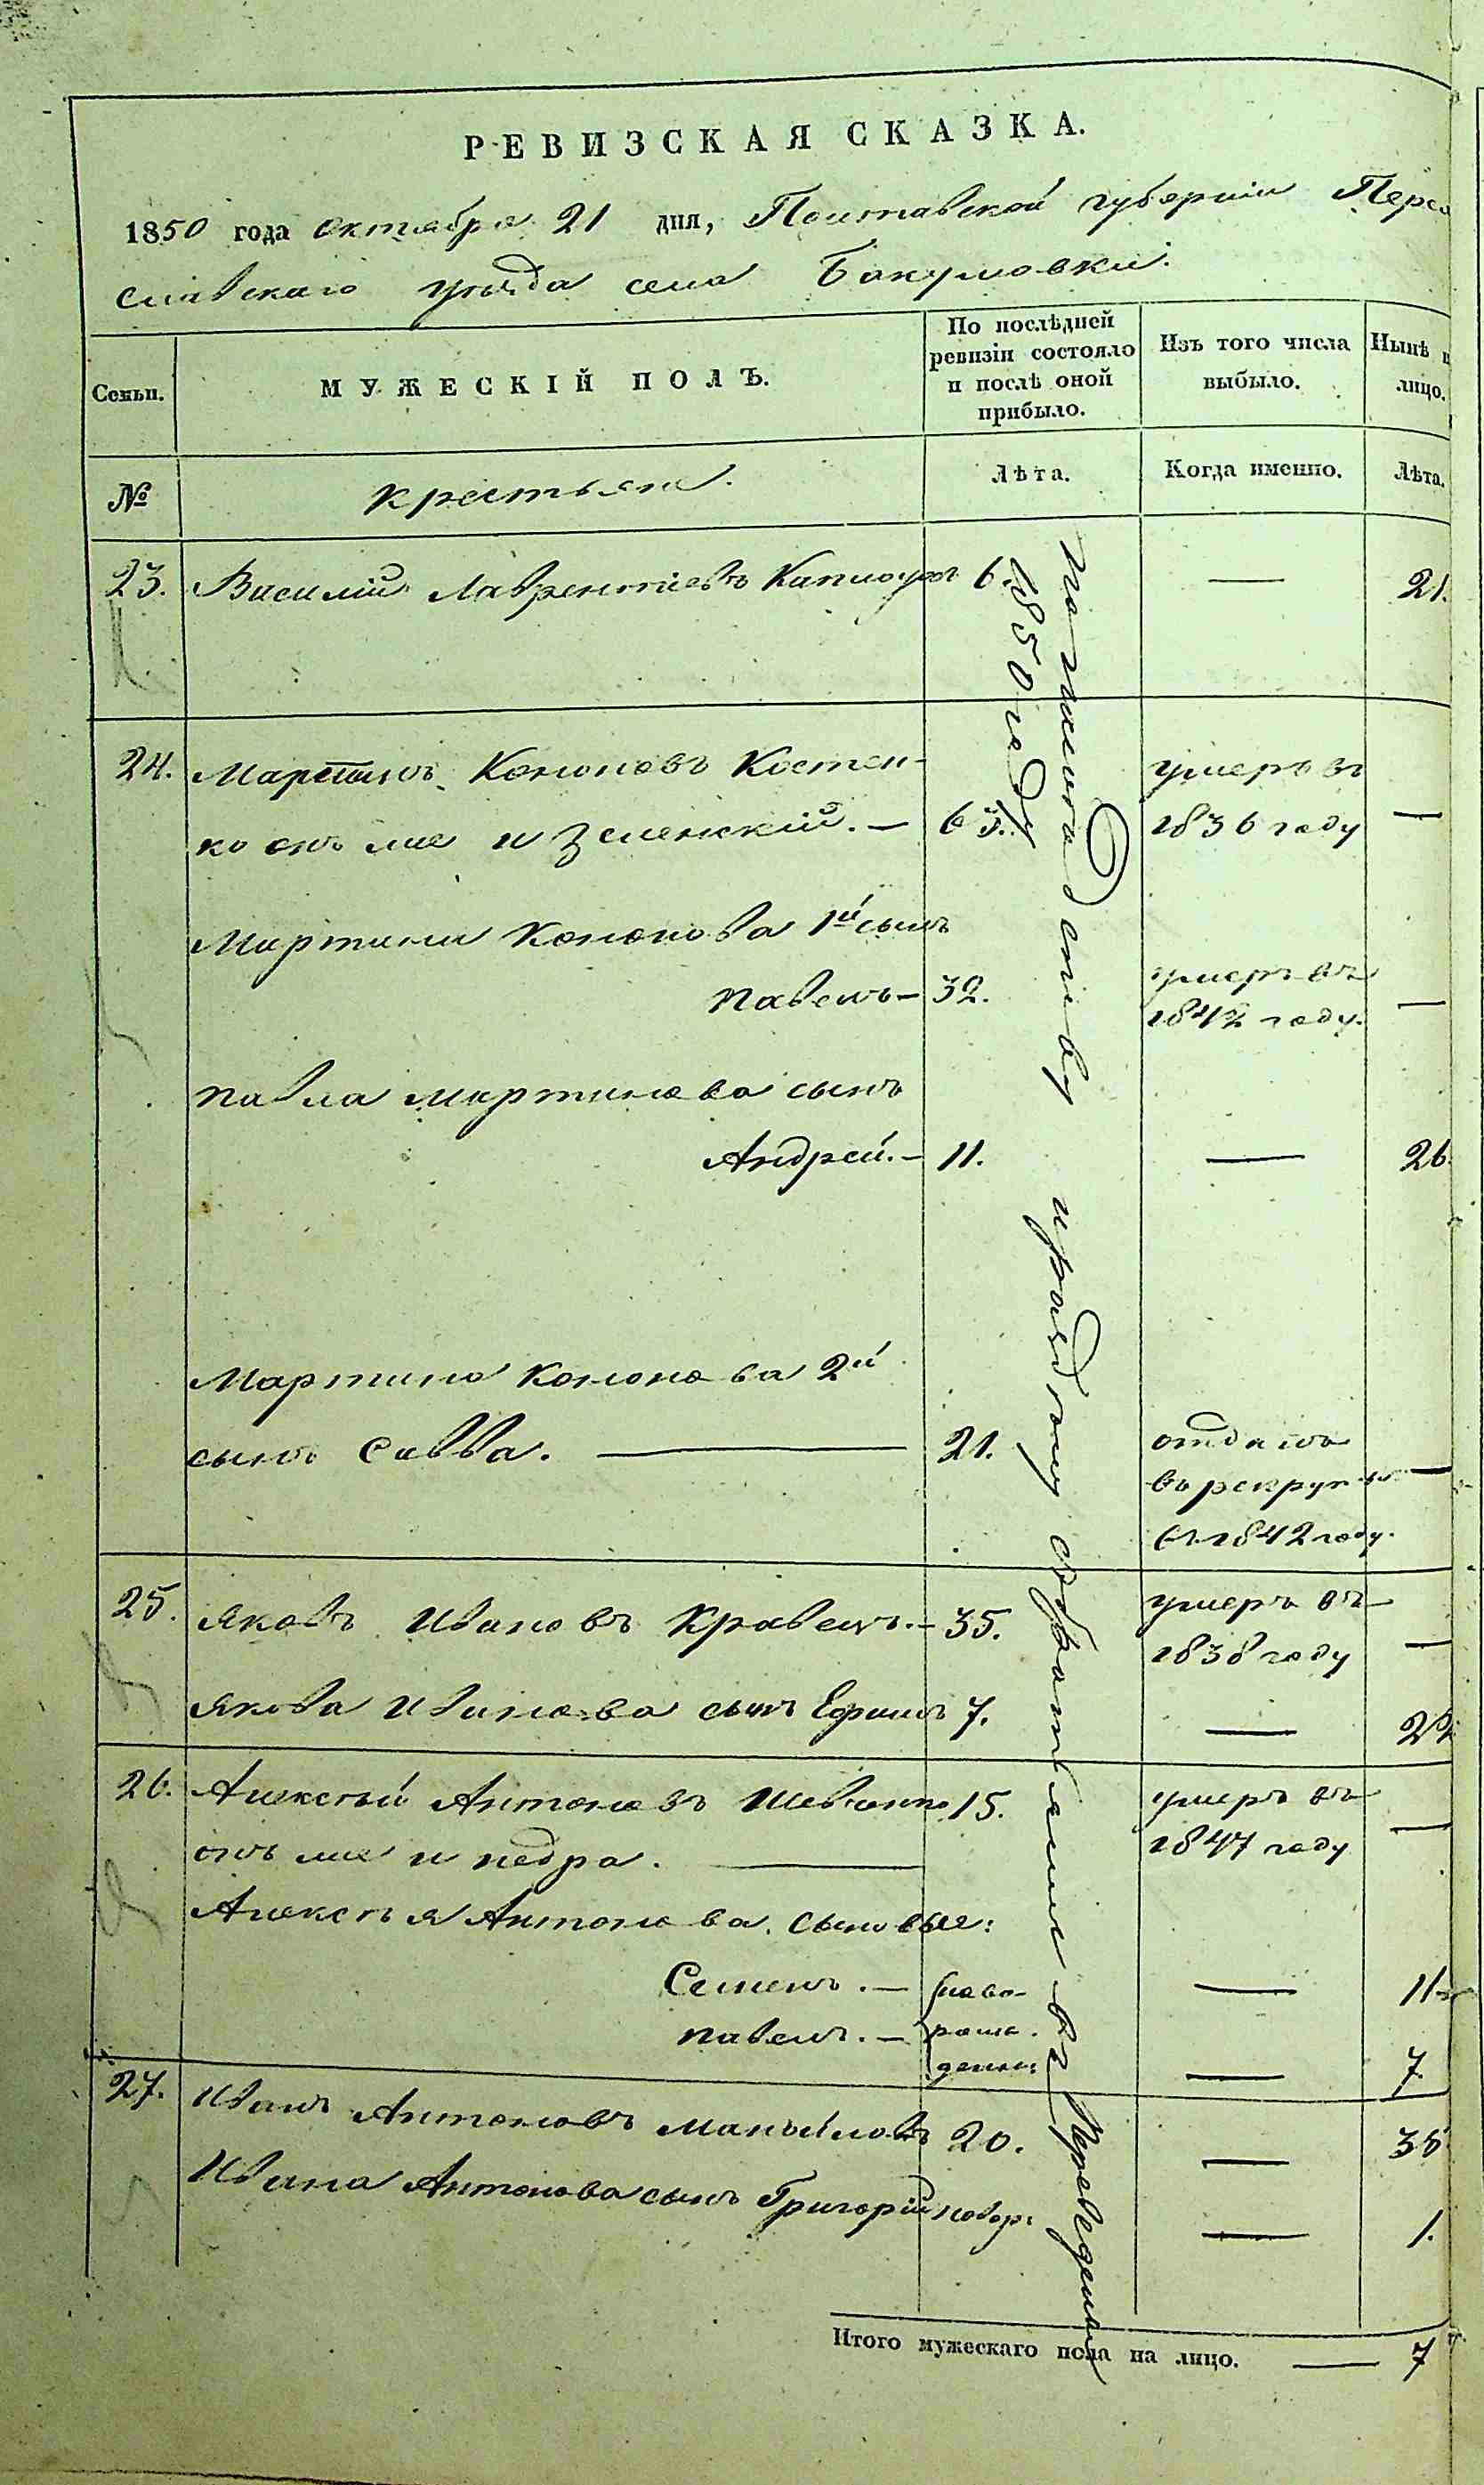 РЕВИЗСКАЯ СКАЗКА.
1850 года октября 21 дня, Полтавской губернии Перея
славскаго уѣзда села Бакумовки.
Семьи.
МУЖЕСКІЙ ПОЛЪ.
По послѣдней
ревизіи состояло
и послѣ оной
прибыло.
Изъ того числа
выбыло.
Нынѣ н
лицо.
№
крестьяне.
Лѣта.
Когда именно.
Лѣта.
23. Василій Лаврентіевъ 6. — 21.
24. Мартинъ Кононовъ Костен- умеръ въ
ко онъ же и Зеленскій. — 65. 1836 году —
Мартина Кононова 1й сынъ
Павелъ — 32. умеръ въ
1842 году. —
Павла Мартинова сынъ
Андрей. — 11. — 26.
Мартина Кононова 2й
сынъ Савва. — 21. отданъ
въ рекруты —
въ 1842 году.
25. Яковъ Ивановъ Кравецъ. — 35. умеръ въ
1838 году —
Якова Иванова сынъ Ефимъ 7. — 22
26. Алексѣй Антоновъ Шевченко 15. умеръ въ
онъ же и 1847 году —
Алексѣя Антонова сыновье:
Семенъ. — ново- — 11
Павелъ. — рож-
денны — 7.
27. Иванъ Антоновъ Манойловъ 20. — 35
Ивана Антонова сынъ Григорій новор: — 1.
по наслѣдству и раздѣлу съ братьями въ
1850 году
Переведены
Итого мужескаго пола на лицо. — 7